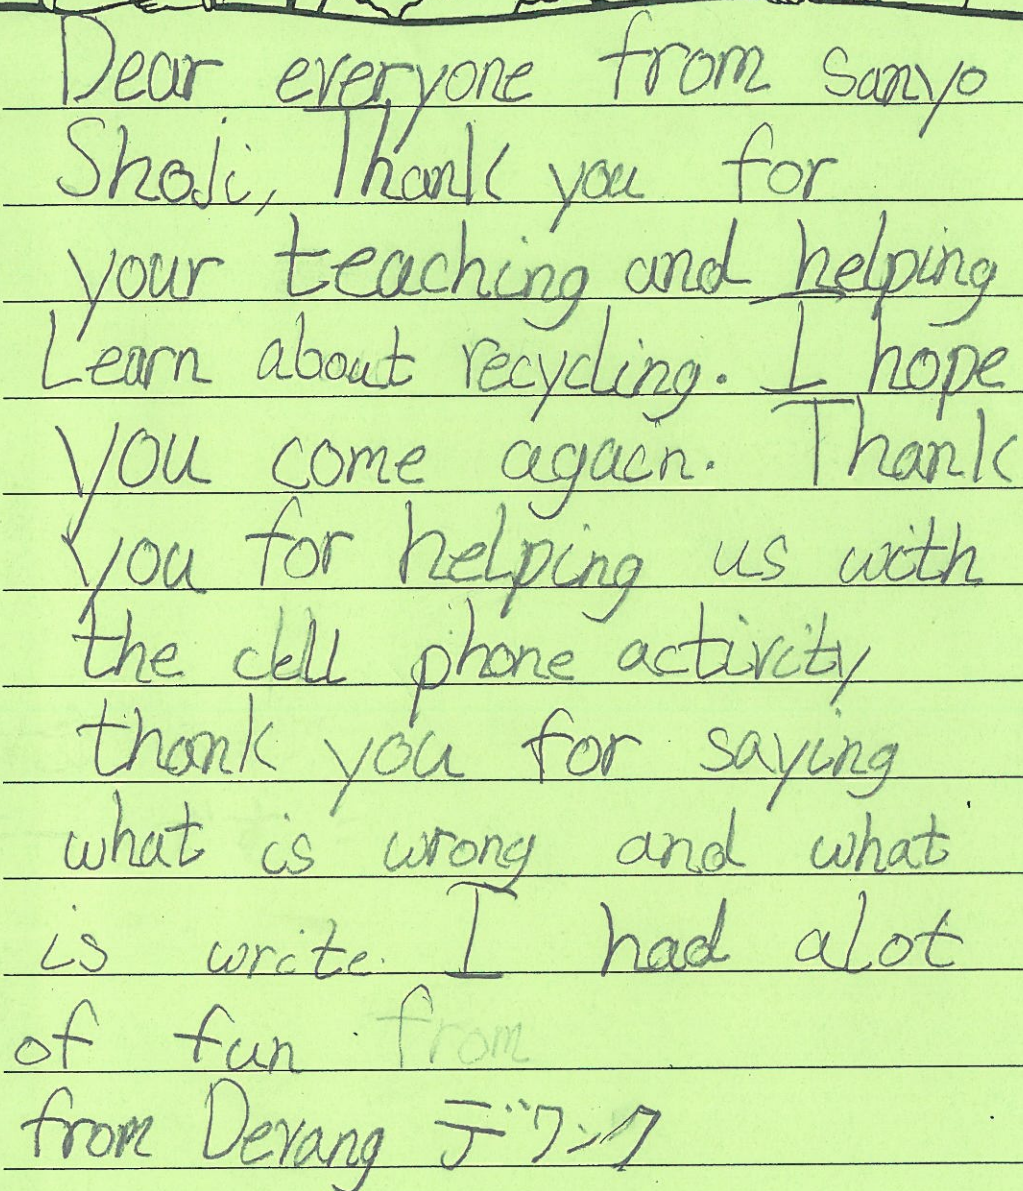 Dear everyone from Sanyo
Shoji, Thank you for
your teaching and helping
Learn about recycling. I hope
you come again. Thank
you for helping us with
the cell phone activity
thank you for saying
what is wrong and what
is write. I had alot
of fun. from
from Devang デワンク